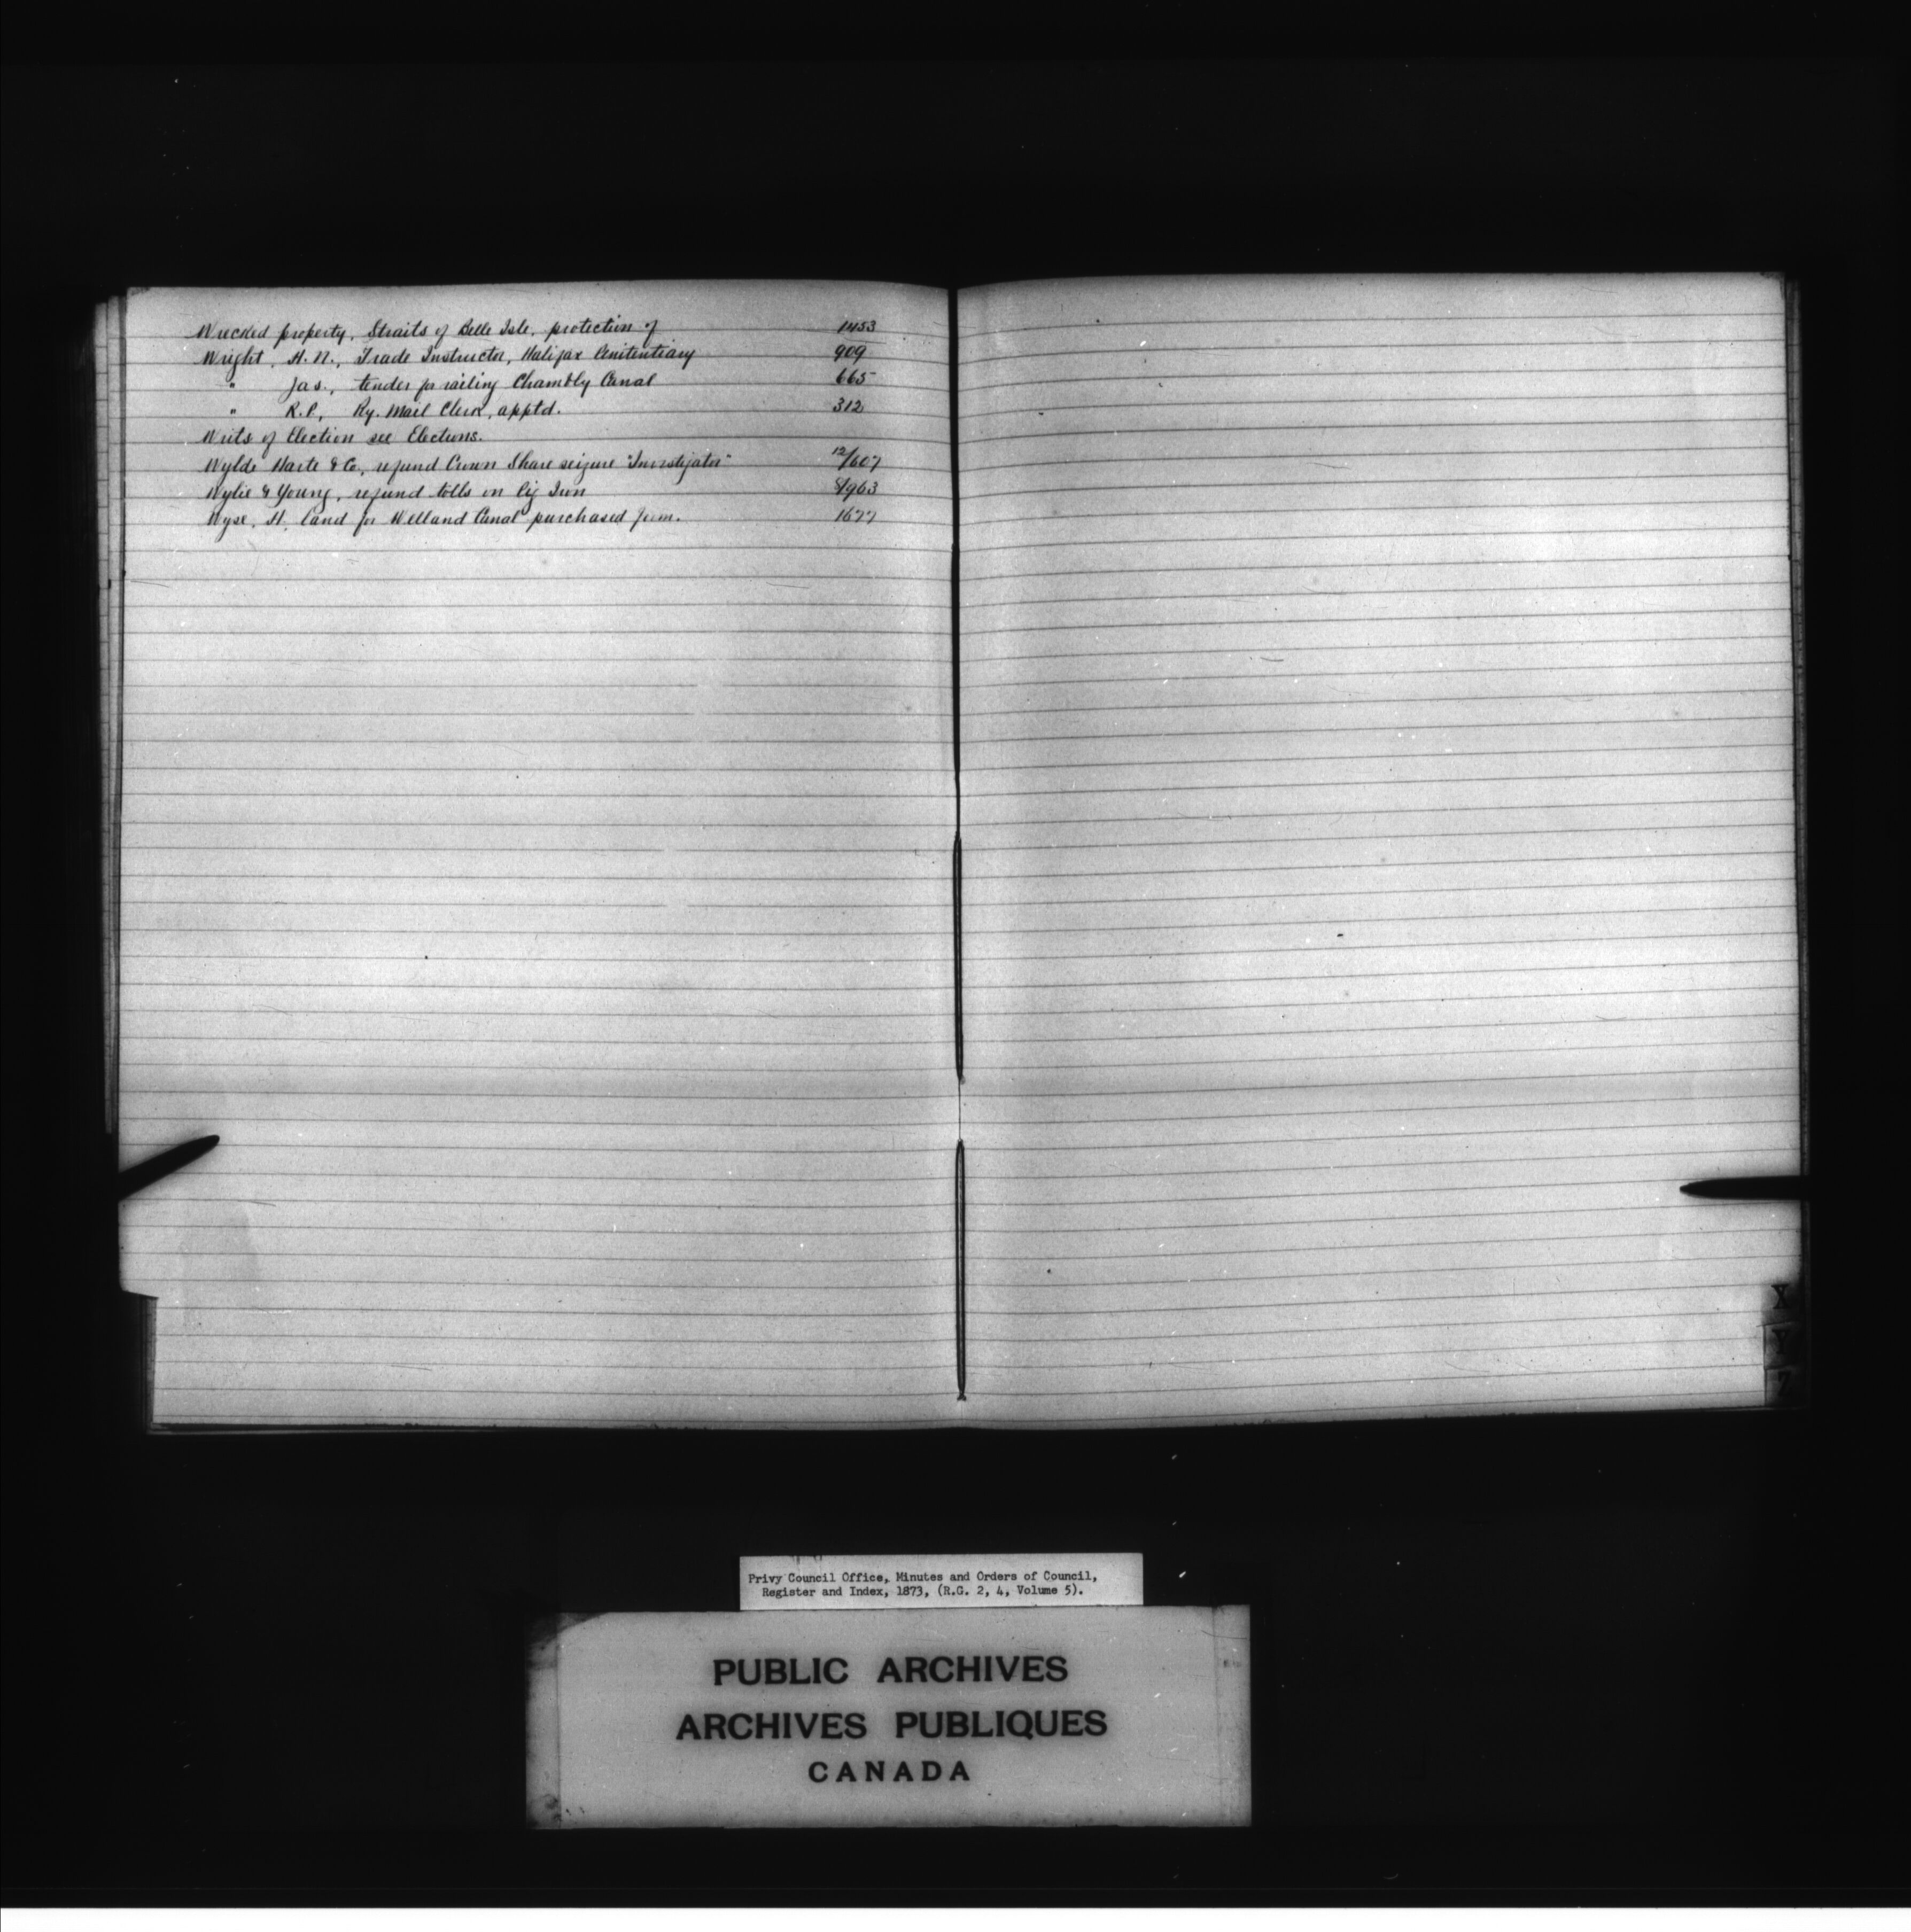 Wrecked property, Straits of Belle Isle, protection of 1453
Wright, H. N., Trade Instructor, Halifax Penitentiary 909
" Jas., tender for railing Chambly Canal 665
" R.P., Ry. Mail Clerk, apptd. 312
Writs of Election see Elections.
Wylde Harte & Co., refund Crown Share seizure "Investigator" 12/607
Wylie & Young, refund tolls on Pig Iron 8/963
Wyse, H. Land for Welland Canal purchased from. 1677
X
Y
Z
Privy Council Office, Minutes and Orders of Council,
Register and Index, 1873, (R.G. 2, 4, Volume 5).
PUBLIC ARCHIVES
ARCHIVES PUBLIQUES
CANADA